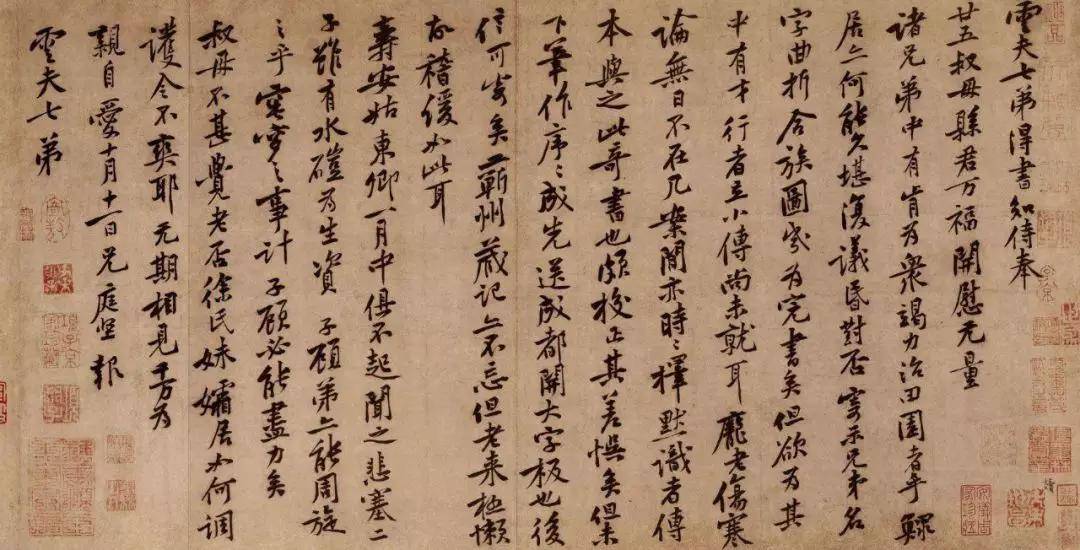 雲夫七弟得書知侍奉
廿五叔母縣君万福開慰无量
諸兄弟中有肯爲衆竭力治田園者乎鰥
居亦何能久堪復議昏對否寄示兄弟名
字曲折合族圖爲完書矣但欲爲其
中有才行者立小傳尚未就耳龐老傷寒
論無日不在几案間亦時〻擇默識者傳
本與之此奇書也頗校正其差悞矣但未
下筆作序〻成先送成都開大字板也後
信可寄矣蘄州藏記亦不忘但老來極懶
故稽緩如此耳
壽安姑東卿一月中俱不起聞之悲塞二
子雖有水磑爲生資子顧弟亦能周旋
之乎窀穸之事計子顧必能盡力矣
叔母不甚覺老否徐氏妹孀居如何調
護令不爽耶无期相見千万爲
親自愛十月十一日兄庭堅報
雲夫七弟